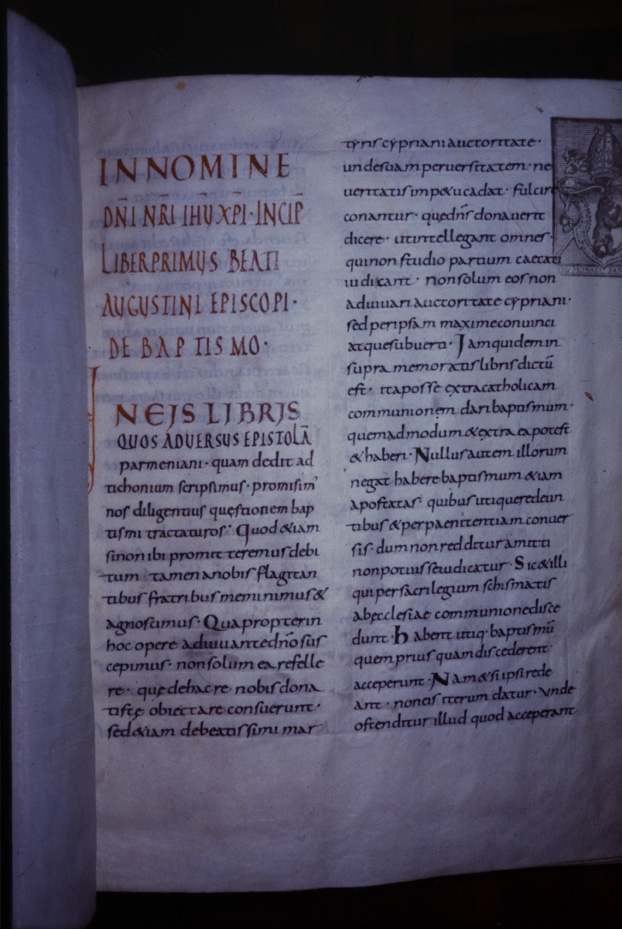 IN NOMINE
DN̄I NR̄I IHŪ XP̄I · INCIP̄
LIBER PRIMUS BEATI
AUGUSTINI EPISCOPI ·
DE BAPTISMO ·
IN EIS LIBRIS
QUOS ADVERSUS EPISTOLĀ
parmeniani · quam dedit ad
tichonium scripsimus · promisim'
nos diligentius questionem bap
tismi tractaturos · Quod & iam
si non ibi promitteremus debi
tum tamen a nobis flagitan
tibus fratribus meminimus &
agnoscimus · Quapropter in
hoc opere adiuvante dn̄o sus
cepimus · non solum ea refelle
re · que de hac re nobis dona
tiste obiectare consuerunt ·
sed & iam de beatissimi mar
tyris cypriani auctoritate ·
unde suam perversitatem · ne
veritatis impetu cadat · fulcire
conantur · que dn̄s donaverit
dicere · ut intellegant omnes ·
qui non studio partium caecati
iudicant · non solum eos non
adiuvari auctoritate cypriani ·
sed per ipsam maxime convinci
atque subverti · Iam quidem in
supra memoratis libris dictū
est · ita posse extra catholicam
communionem dari baptismum ·
quemadmodum & extra ea potest
& haberi · Nullus autem illorum
negat habere baptismum & iam
apostatas · quibus utique redeun
tibus & per paenitentiam conver
sis · dum non redditur amitti
non potuisse iudicatur · Sic & illi
qui per sacrilegium schismatis
ab ecclesiae communione disce
dunt · habent utiq· baptismū
quem prius quam discederent ·
acceperunt · Nam & si ipsi rede
ant · non eis iterum datur · unde
ostenditur illud quod acceperant